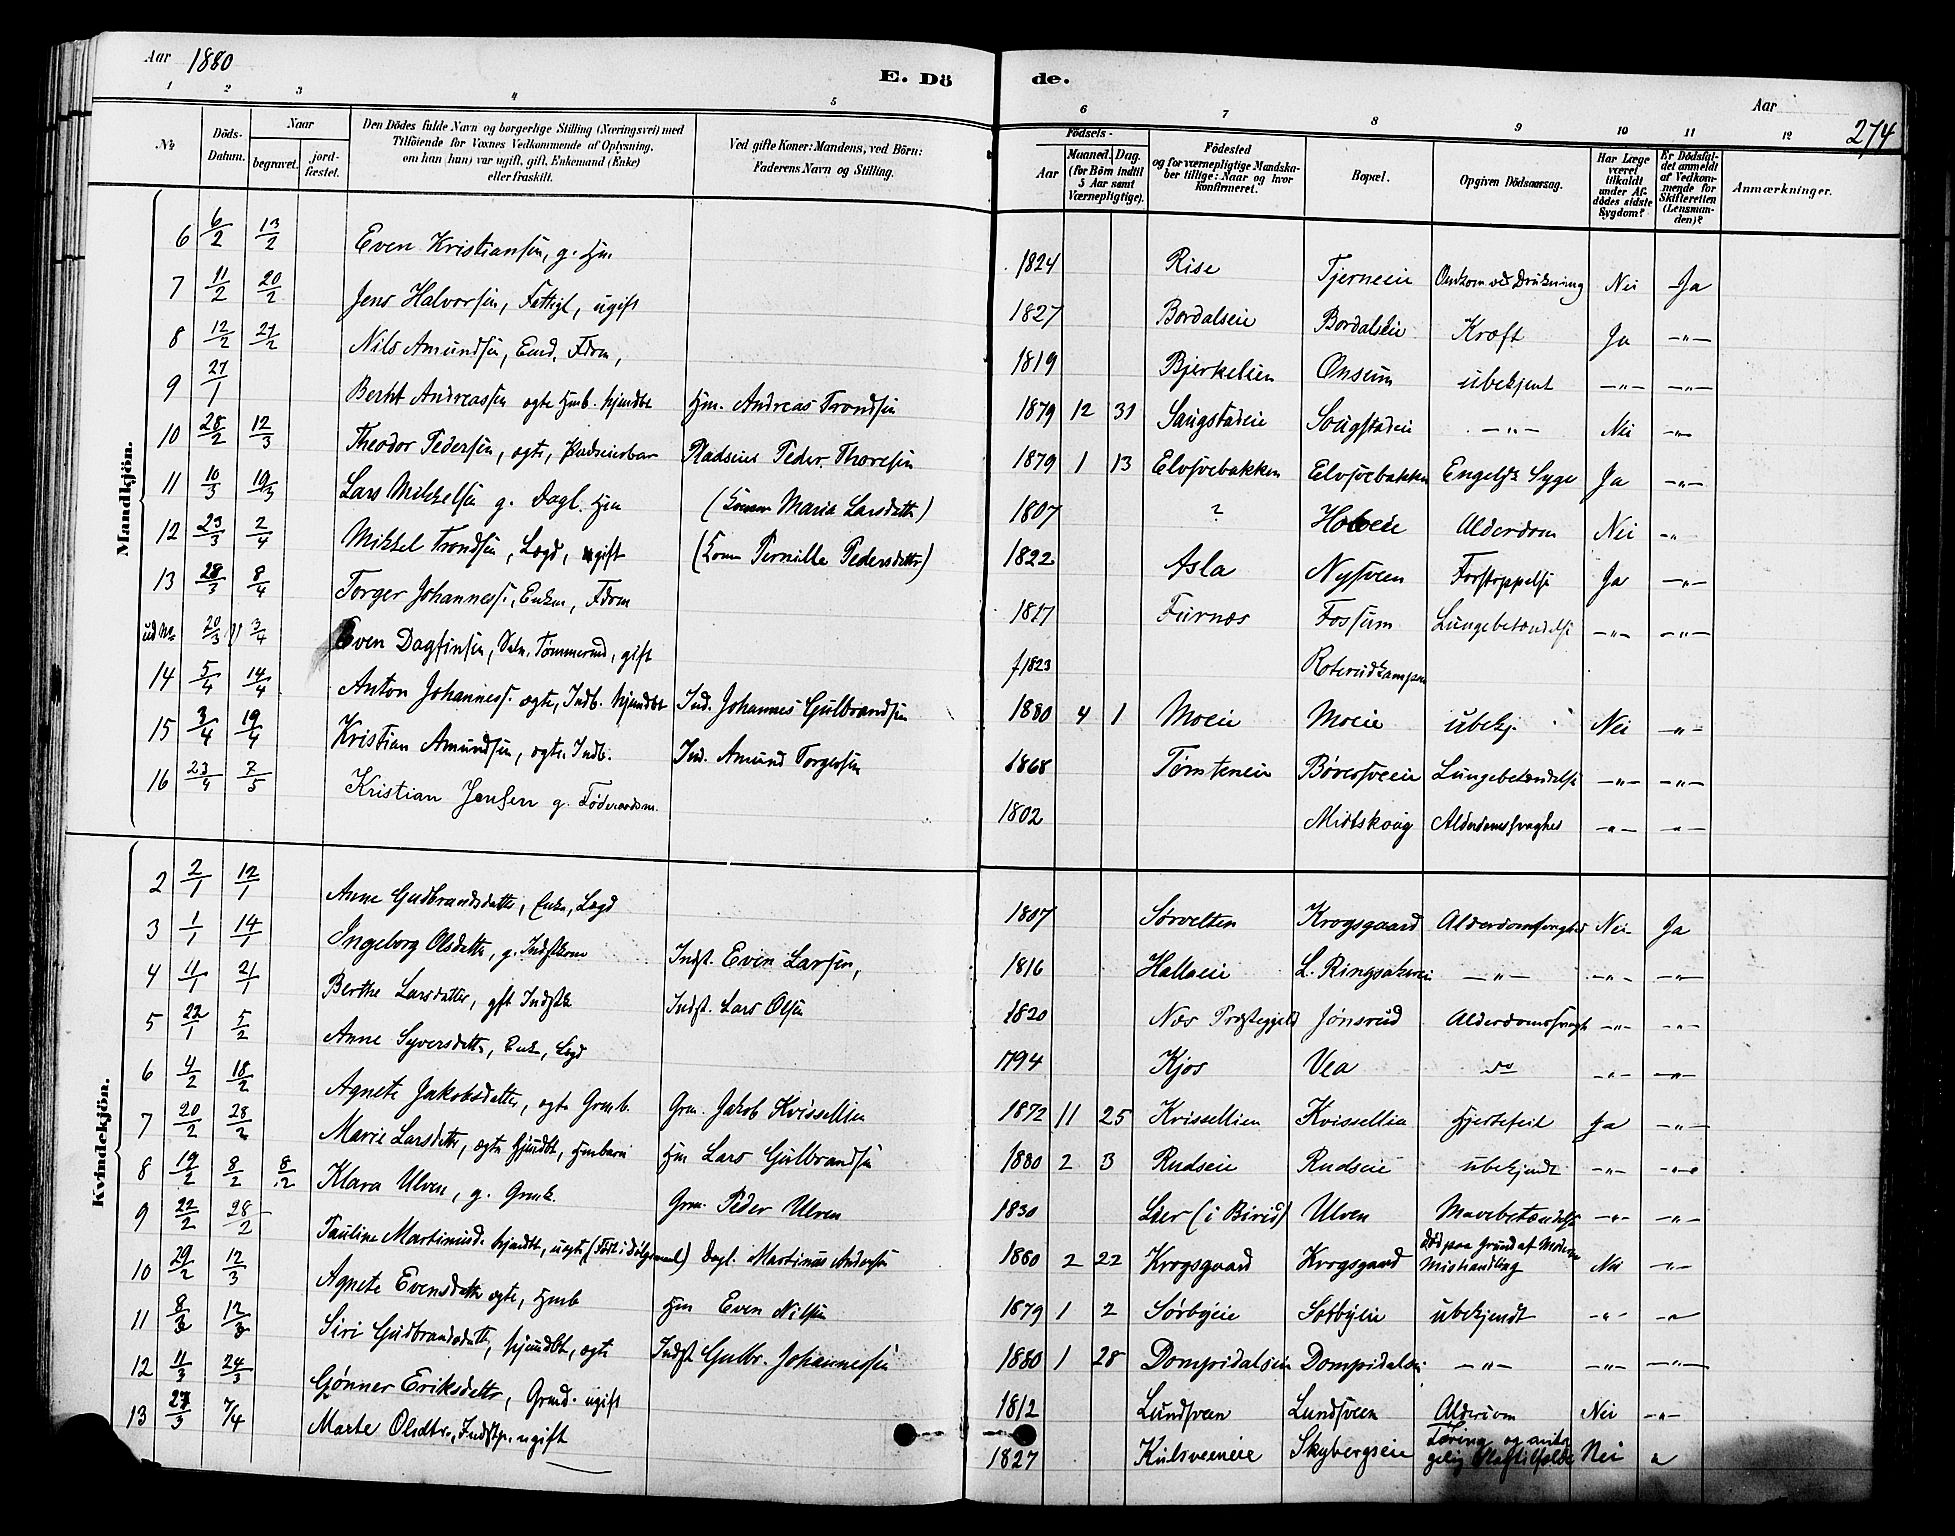 Aar 1880
E. Dö de.
Aar
274
1 2 3 4 5 6 7 8 9 10 11 12
No
Döds-Datum.
Naar
begravet.
jord-fæstet.
Den Dödes fulde Navn og borgerlige Stilling (Næringsvei) med
Tilföiende for Voxnes Vedkommende af Oplysning,
om han (hun) var ugift, gift, Enkemand (Enke)
eller fraskilt.
Ved gifte Koner: Mandens, ved Börn:
Faderens Navn og Stilling.
Födsels-
Aar
Maaned. Dag.
(for Börn indtil
5 Aar samt
Værnepligtige).
Födested
og for værnepligtige Mandska-
ber tillige: Naar og hvor
konfirmeret.
Bopæl.
Opgiven Dödsaarsag.
Har Læge
været
tilkaldt
under Af-
dödes sidste
Sygdom?
Er Dödsfal-
det anmeldt
af Vedkom-
mende for
Skifteretten
(Lensman-
den)?
Anmærkninger.
Mandkjön.
6 6/2 13/2 Even Kristiansen, g. Hm. 1824 Rise Tjerneeie Omkom ved Drukning Nei Ja
7 11/2 20/2 Jens Halvorsen, Fattigl, ugift 1827 Bordalseie Bordalseie Kræft Ja -"-
8 12/2 21/2 Nils Amundsen, Enkd. Fdrm, 1819 Bjerkelien Onsum ubekjent -"- -"-
9 27/1 Bernt Andreassen ægte Hmb. hjemdbt Hm. Andreas Trondsen 1879 12 31 Saugstadeie Saugstadeie -"- Nei -"-
10 28/2 12/3 Theodor Pedersen, ægte, Pladseierbar Pladseier Peder Thoresen 1879 1 13 Elvsvebakken Elvsvebakken Engelsk Syge Ja -"-
11 10/3 19/3 Lars Mikkelsen g. Dagl. Hm (Konen Maria Larsdatter) 1807 ? Holoeie Alderdom Nei -"-
12 23/3 2/4 Mikkel Trondsen, Lægd, ugift (Kone Pernille Pedersdatter) 1822 Asla Nysveen Forstoppelse Ja -"-
13 28/3 8/4 Torger Johanness., Enkm, Fdrm 1817 Furnæs Fossum Lungebetændelse -"- -"-
ud No 20/3 3/4 Even Dagfinsen, Selv. Tømmermd, gift f 1823 Roterudkampen
14 5/4 14/4 Anton Johanness. ægte, Indb. hjemdbt Ind. Johannes Gulbrandsen 1880 4 1 Moeie Moeie ubekj. Nei -"-
15 3/4 19/4 Kristian Amundsen, ægte Indb. Ind. Amund Torgersen 1868 Tømteneie Bøversveeie Lungebetændelse -"- -"-
16 23/4 7/5 Kristian Jensen g. Föderaadsm. 1802 Midtskoug Alderdomssvaghed -"- -"-
Kvindekjön.
2 2/1 12/1 Anne Gudbrandsdatter, Enke, Lægd 1807 Sørvelten Krogsgaard Alderdomssvaghed Nei Ja
3 1/1 14/1 Ingeborg Olsdatter, g. Indstkone Indst. Even Larsen, 1816 Hallaeie L. Ringsakereie -"- -"- -"-
4 11/1 21/1 Berthe Larsdatter, gift Indstk Indst. Lars Olsen 1820 Næs Præstegjeld Jønsrud Alderdomssvagh -"- -"-
5 22/1 5/2 Anne Syversdatter, Enke, Lægd 1794 Kjos Vea do -"- -"-
6 4/2 18/2 Agnete Jakobsdatter, ægte Grmb. Grm. Jakob Kvissellien 1872 11 25 Kvissellien Kvissellien Hjertefeil Ja -"-
7 20/2 28/2 Marie Larsdatter, ægte hjemdbt, Hmbarn Hm Lars Gulbrandsen 1880 2 3 Rudseie Rudseie ubekjendt -"- -"-
8 19/2 8/2 8/2 Klara Ulven, g. Grmk. Grm. Peder Ulven 1830 Lier (i Birid) Ulven Mavebetændelse -"- -"-
9 22/2 28/2 Pauline Martinusd. hjemdbt, uægte (Født i Dølgsmaal) Dagl. Martinus Andersen 1880 2 22 Krogsgaard Krogsgaard Død paa Grund af Moderens Mishandling Nei -"-
10 29/2 12/3 Agnete Evensdatter ægte, Hmb Hm Even Nilsen 1879 1 2 Sørbyeie Sørbyeie ubekjendt -"- -"-
11 8/3 12/3 Siri Gudbrandsdatter, hjemdbt, ægte Indst Gulbr. Johannessen 1880 1 28 Dompidalseie Dompidalseie -"- -"- -"-
12 11/3 24/3 Gønner Eriksdatter, Grmd. ugift 1812 Lundsveen Lundsveen Alderdom Nei -"-
13 27/3 7/4 Marte Olsdtr., Indstp. ugift 1827 Kulsveeneie Skybergseie Tæring og Nei "